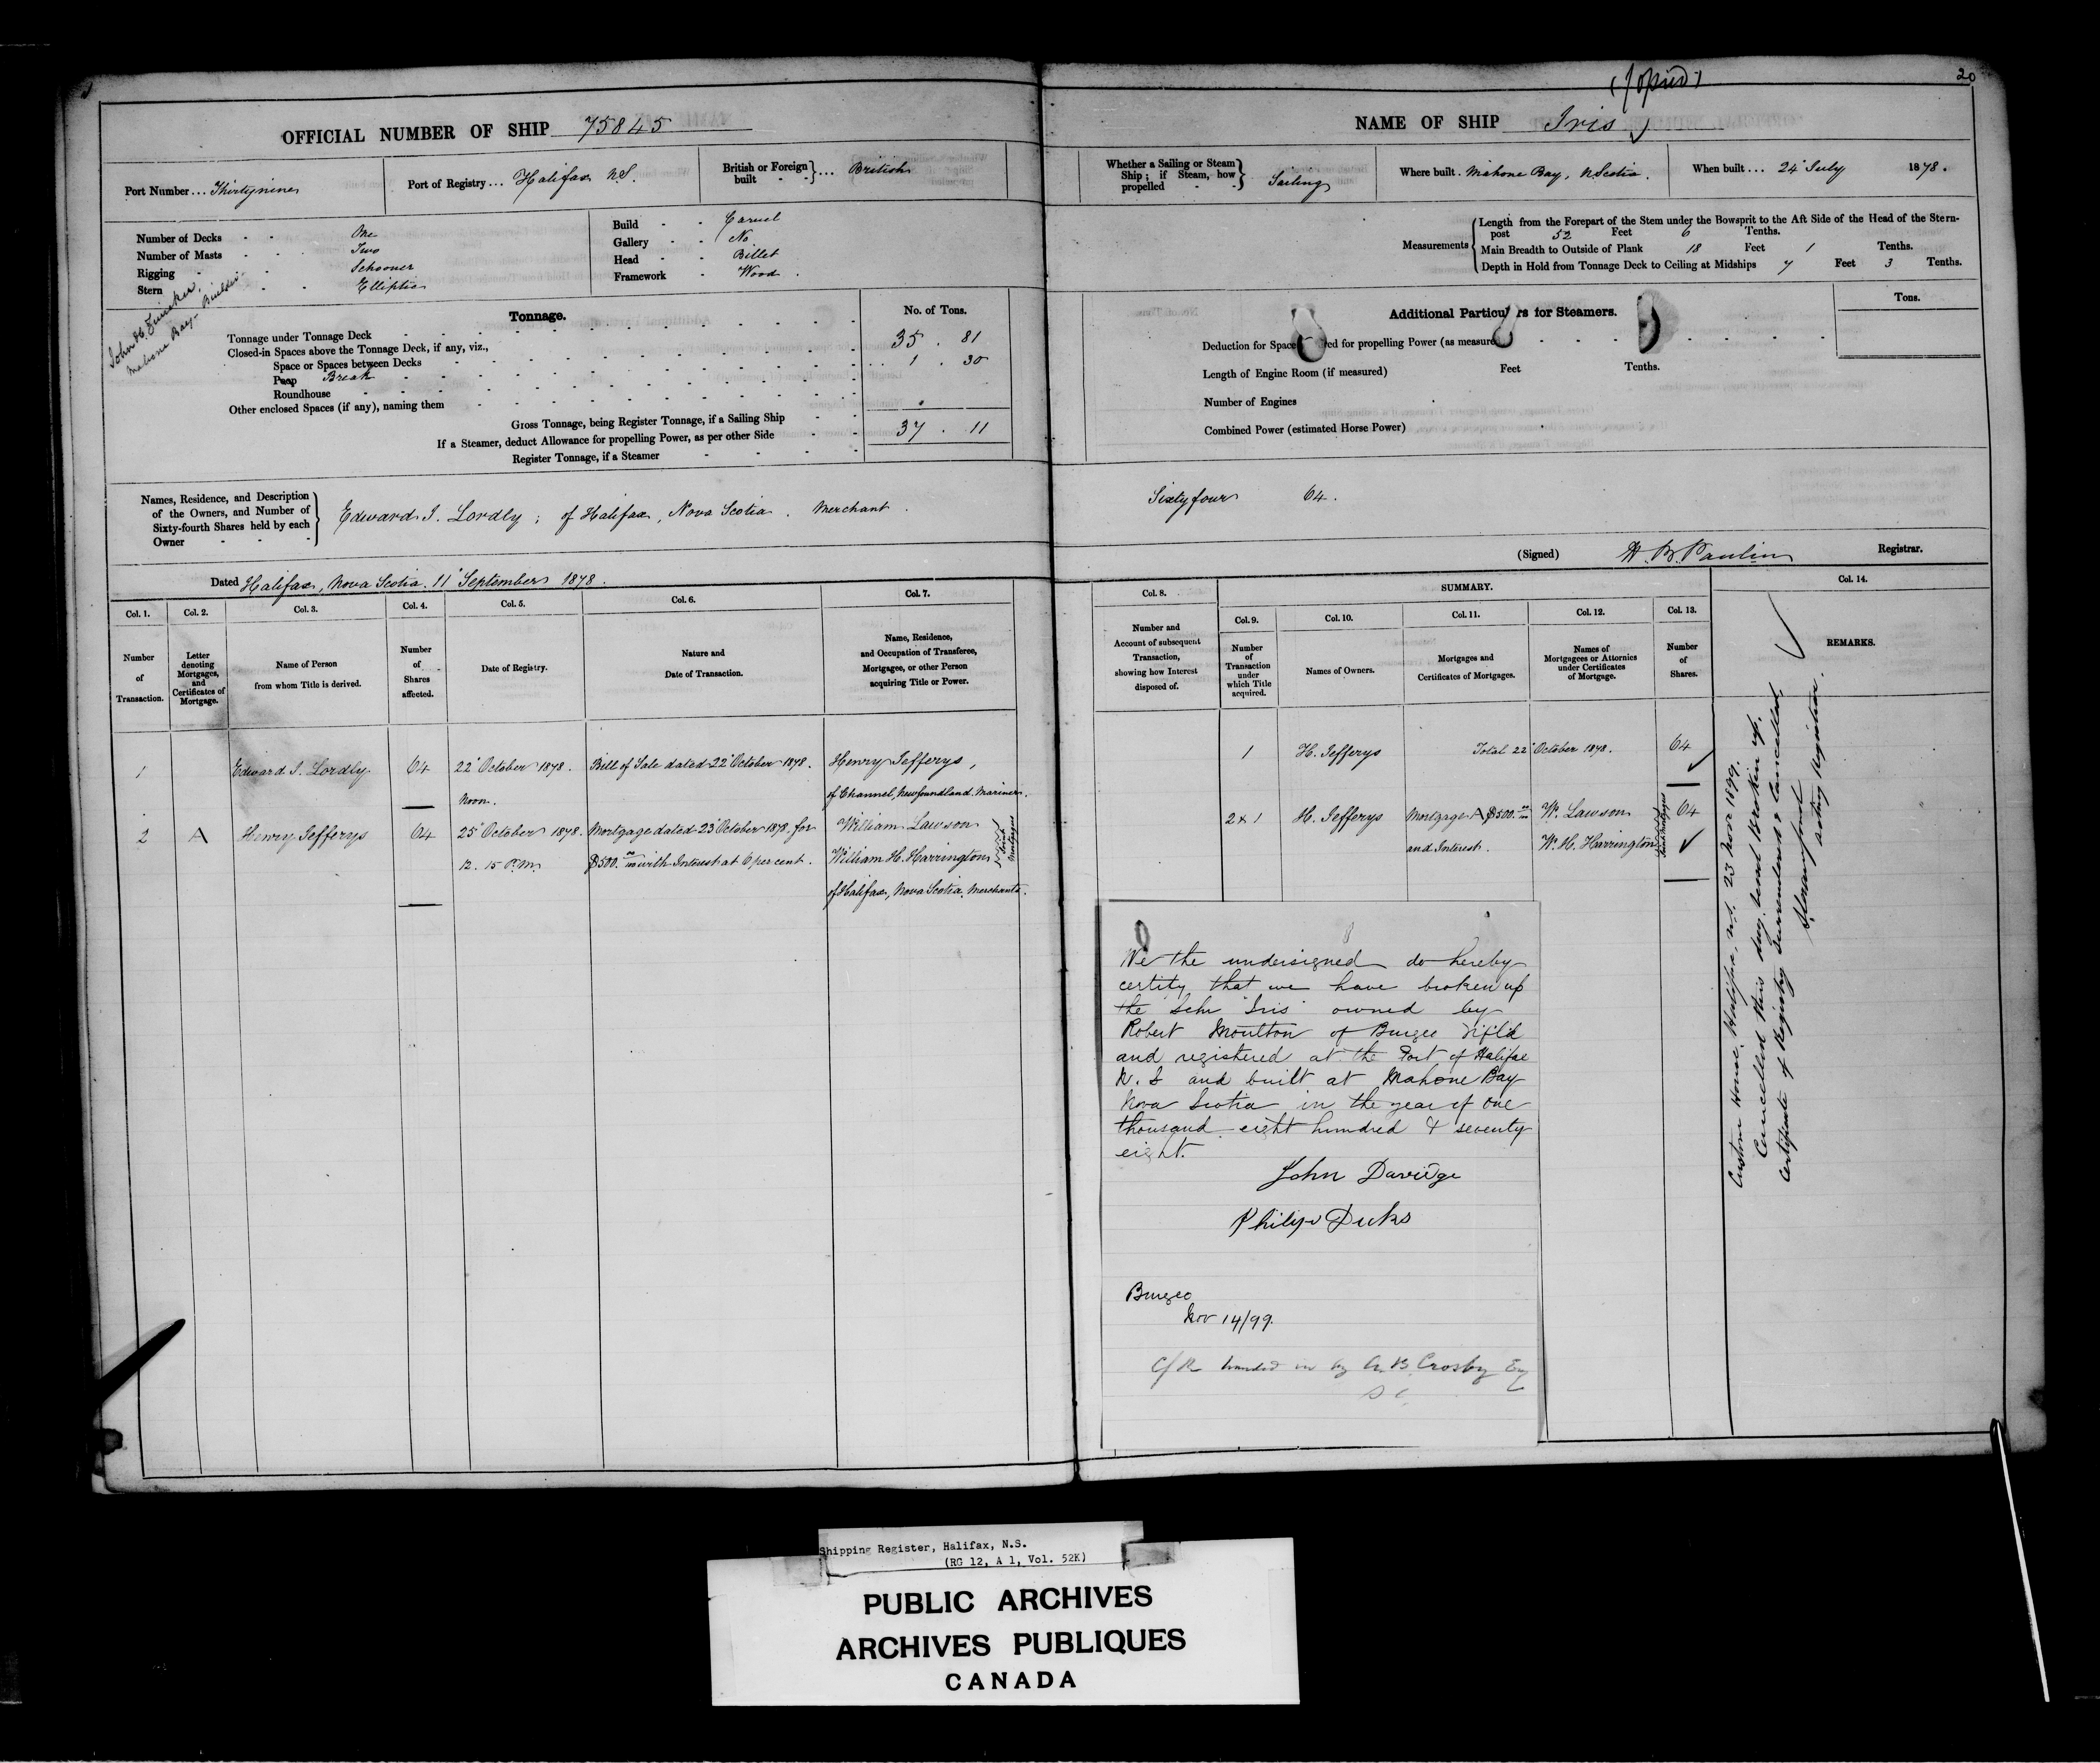 (Copied)
20
OFFICIAL NUMBER OF SHIP 75845
NAME OF SHIP Iris
Port Number ... Thirtynine
Port of Registry ... Halifax N.S.
British or Foreign built } ... British
Whether a Sailing or Steam Ship; if Steam, how propelled } Sailing
Where built . Mahone Bay, N. Scotia .
When built ... 24" July 1878.
Number of Decks - - One
Number of Masts - - Two
Rigging - Schooner
Stern - - Elliptic
Build - - Carvel
Gallery - - No
Head - - Billet
Framework - Wood .
Measurements
Length from the Forepart of the Stem under the Bowsprit to the Aft Side of the Head of the Stern-
post 52 Feet 6 Tenths.
Main Breadth to Outside of Plank 18 Feet 1 Tenths.
Depth in Hold from Tonnage Deck to Ceiling at Midships 7 Feet 3 Tenths.
John H.
Mahone Bay - Builder
Tonnage.
No. of Tons.
Tonnage under Tonnage Deck 35 . 81
Closed-in Spaces above the Tonnage Deck, if any, viz.,
Space or Spaces between Decks 1 . 30
Poop Break
Roundhouse
Other enclosed Spaces (if any), naming them
Gross Tonnage, being Register Tonnage, if a Sailing Ship 37 . 11
If a Steamer, deduct Allowance for propelling Power, as per other Side
Register Tonnage, if a Steamer
Additional Particulars for Steamers.
Tons.
Deduction for Space ed for propelling Power (as measure
Length of Engine Room (if measured) Feet Tenths.
Number of Engines
Combined Power (estimated Horse Power)
Names, Residence, and Description
of the Owners, and Number of
Sixty-fourth Shares held by each
Owner
Edward I. Lordly ; of Halifax, Nova Scotia . Merchant .
Sixty four 64 .
(Signed) W. B. Paulin Registrar.
Dated Halifax, Nova Scotia. 11" September 1878 .
Col. 1. Col. 2. Col. 3. Col. 4. Col. 5. Col. 6. Col. 7.
Number of Transaction.
Letter denoting Mortgages, and Certificates of Mortgage.
Name of Person from whom Title is derived.
Number of Shares affected.
Date of Registry.
Nature and Date of Transaction.
Name, Residence, and Occupation of Transferee, Mortgagee, or other Person acquiring Title or Power.
Col. 8. SUMMARY. Col. 14.
Col. 9. Col. 10. Col. 11. Col. 12. Col. 13.
Number and Account of subsequent Transaction, showing how Interest disposed of.
Number of Transaction under which Title acquired.
Names of Owners.
Mortgages and Certificates of Mortgages.
Names of Mortgagees or Attornies under Certificates of Mortgage.
Number of Shares.
REMARKS.
1 Edward I. Lordly. 64 22" October 1878 . Bill of Sale dated 22" October 1878 . Henry Jefferys ,
Noon. of Channel, Newfoundland. Mariner.
2 A Henry Jefferys 64 25" October 1878. Mortgage dated 23" October 1878, for William Lawson
12. 15 P.M. $500. 00/100 with Interest at 6 per cent . William H. Harrington
Joint Mortgagees
of Halifax, Nova Scotia. Merchants .
1 H. Jefferys Total 22" October 1878. 64
2 & 1 H. Jefferys Mortgage A $500. 00/100 Wm. Lawson 64
and Interest. Wm. H. Harrington
Joint Mortgagees
Custom House, Halifax, N.S. 23 Nov 1899.
Cancelled this day. Vessel Broken up.
Certificate of Registry surrendered & Cancelled.
Acting Registrar.
We the undersigned do hereby
certify that we have broken up
the Schr "Iris" owned by
Robert Moulton of Burgeo Nfld
and registered at the Port of Halifax
N. S and built at Mahone Bay
Nova Scotia in the year of one
thousand eight hundred & seventy
eight.
John Davidge
Philip Dicks
Burgeo
Nov 14/99.
C/R handed in by A. B. Crosby Esq
Shipping Register, Halifax, N.S.
(RG 12, A 1, Vol. 52K)
PUBLIC ARCHIVES
ARCHIVES PUBLIQUES
CANADA